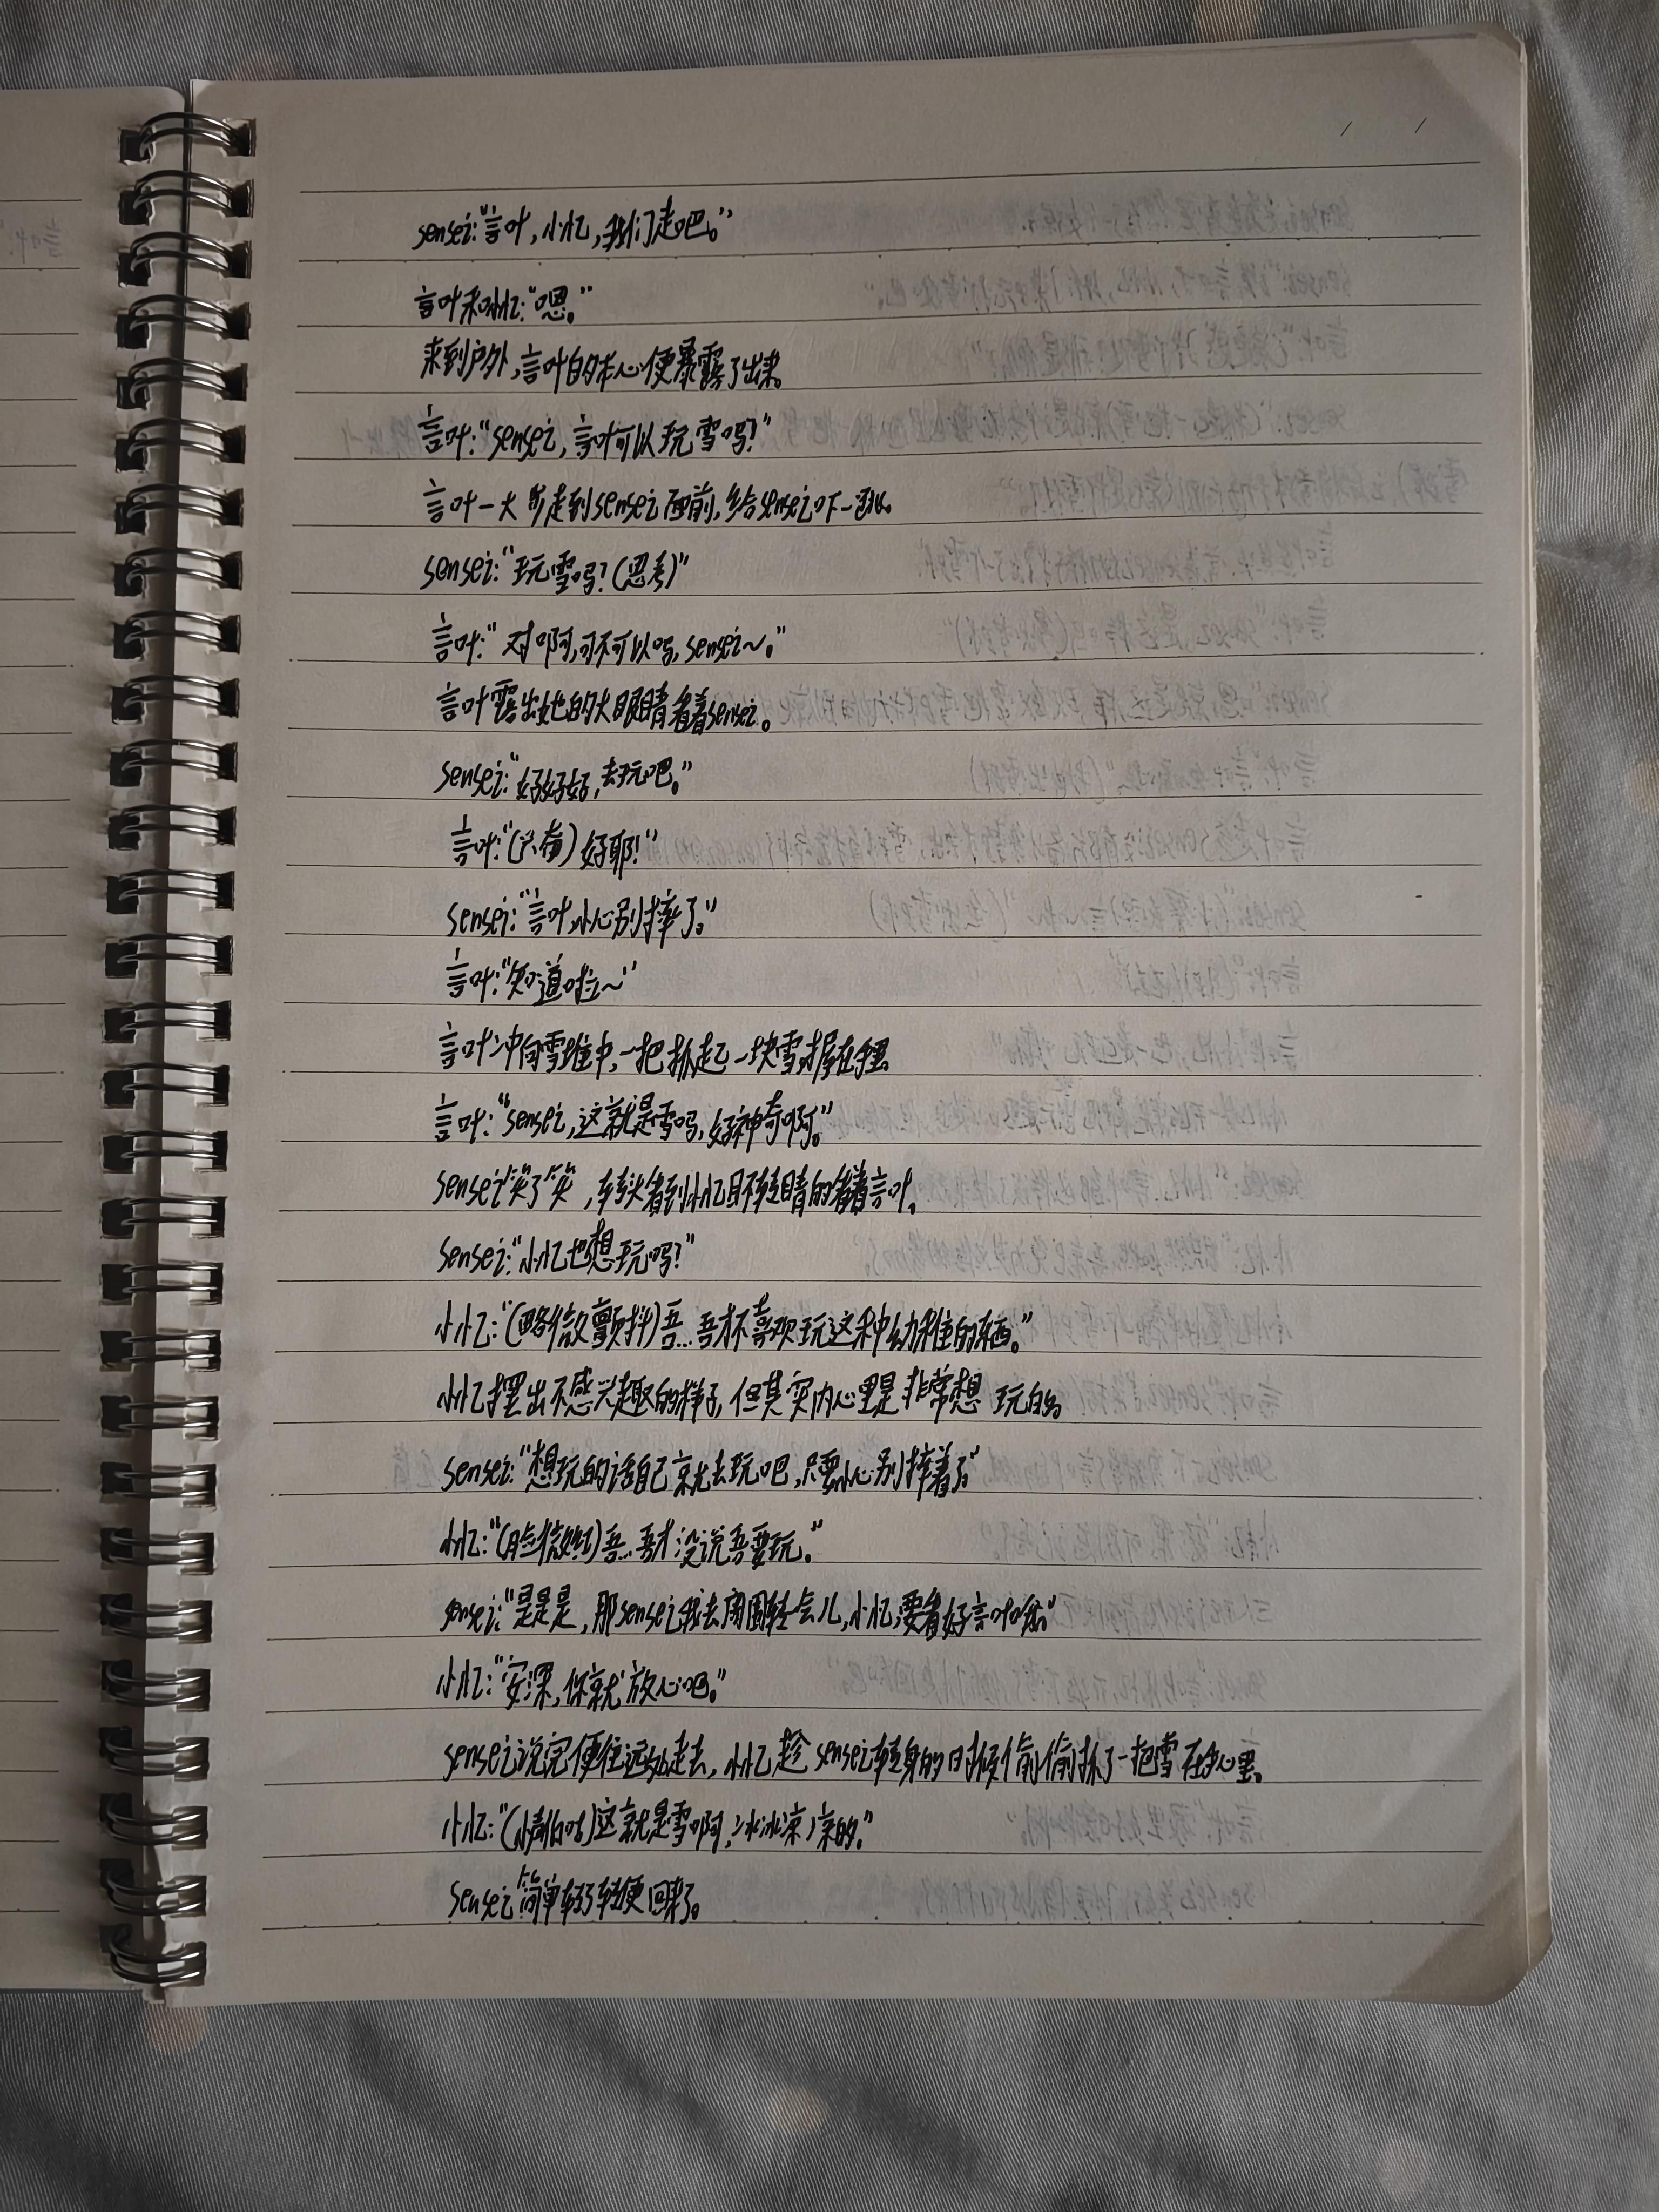 sensei:“言叶,小忆,我们走吧。”
言叶和小忆:“嗯。”
来到户外,言叶的本心便暴露了出来。
言叶:“sensei,言叶可以玩雪吗?”
言叶一大步走到sensei面前,给sensei吓一跳。
sensei:“玩雪吗?(思考)”
言叶:“对啊,可不可以吗,sensei~。”
言叶露出她的大眼睛看着sensei。
sensei:“好好好,去玩吧。”
言叶:“(兴奋)好耶!”
sensei:“言叶,小心别摔了。”
言叶:“知道啦~”
言叶冲向雪堆中,一把抓起一块雪,握在手里。
言叶:“sensei,这就是雪吗,好神奇啊。”
sensei笑了笑,转头看到小忆目不转睛的看着言叶。
sensei:“小忆也想玩吗?”
小忆:“(略微颤抖)吾...吾才不喜欢玩这种幼稚的东西。”
小忆摆出不感兴趣的样子,但其实内心里是非常想玩的。
sensei:“想玩的话自己就去玩吧,只要小心别摔着了。”
小忆:“(脸微红)吾...吾才没说吾要玩。”
sensei:“是是是,那sensei我去周围转会儿,小忆,要看好言叶哦。”
小忆:“安深,你就放心吧。”
sensei说完便往远处走去,小忆趁sensei转身的时候偷偷抓了一把雪在手心里。
小忆:“(小声嘀咕)这就是雪啊,冰冰凉凉的。”
sensei简单转了转便回来了。